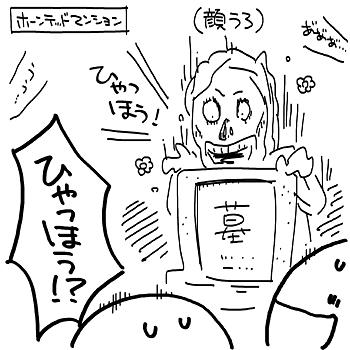 ホーンテッドマンション
(顔うろ)
おおお…
ひゃっほう!
ひゃっほう!?
墓